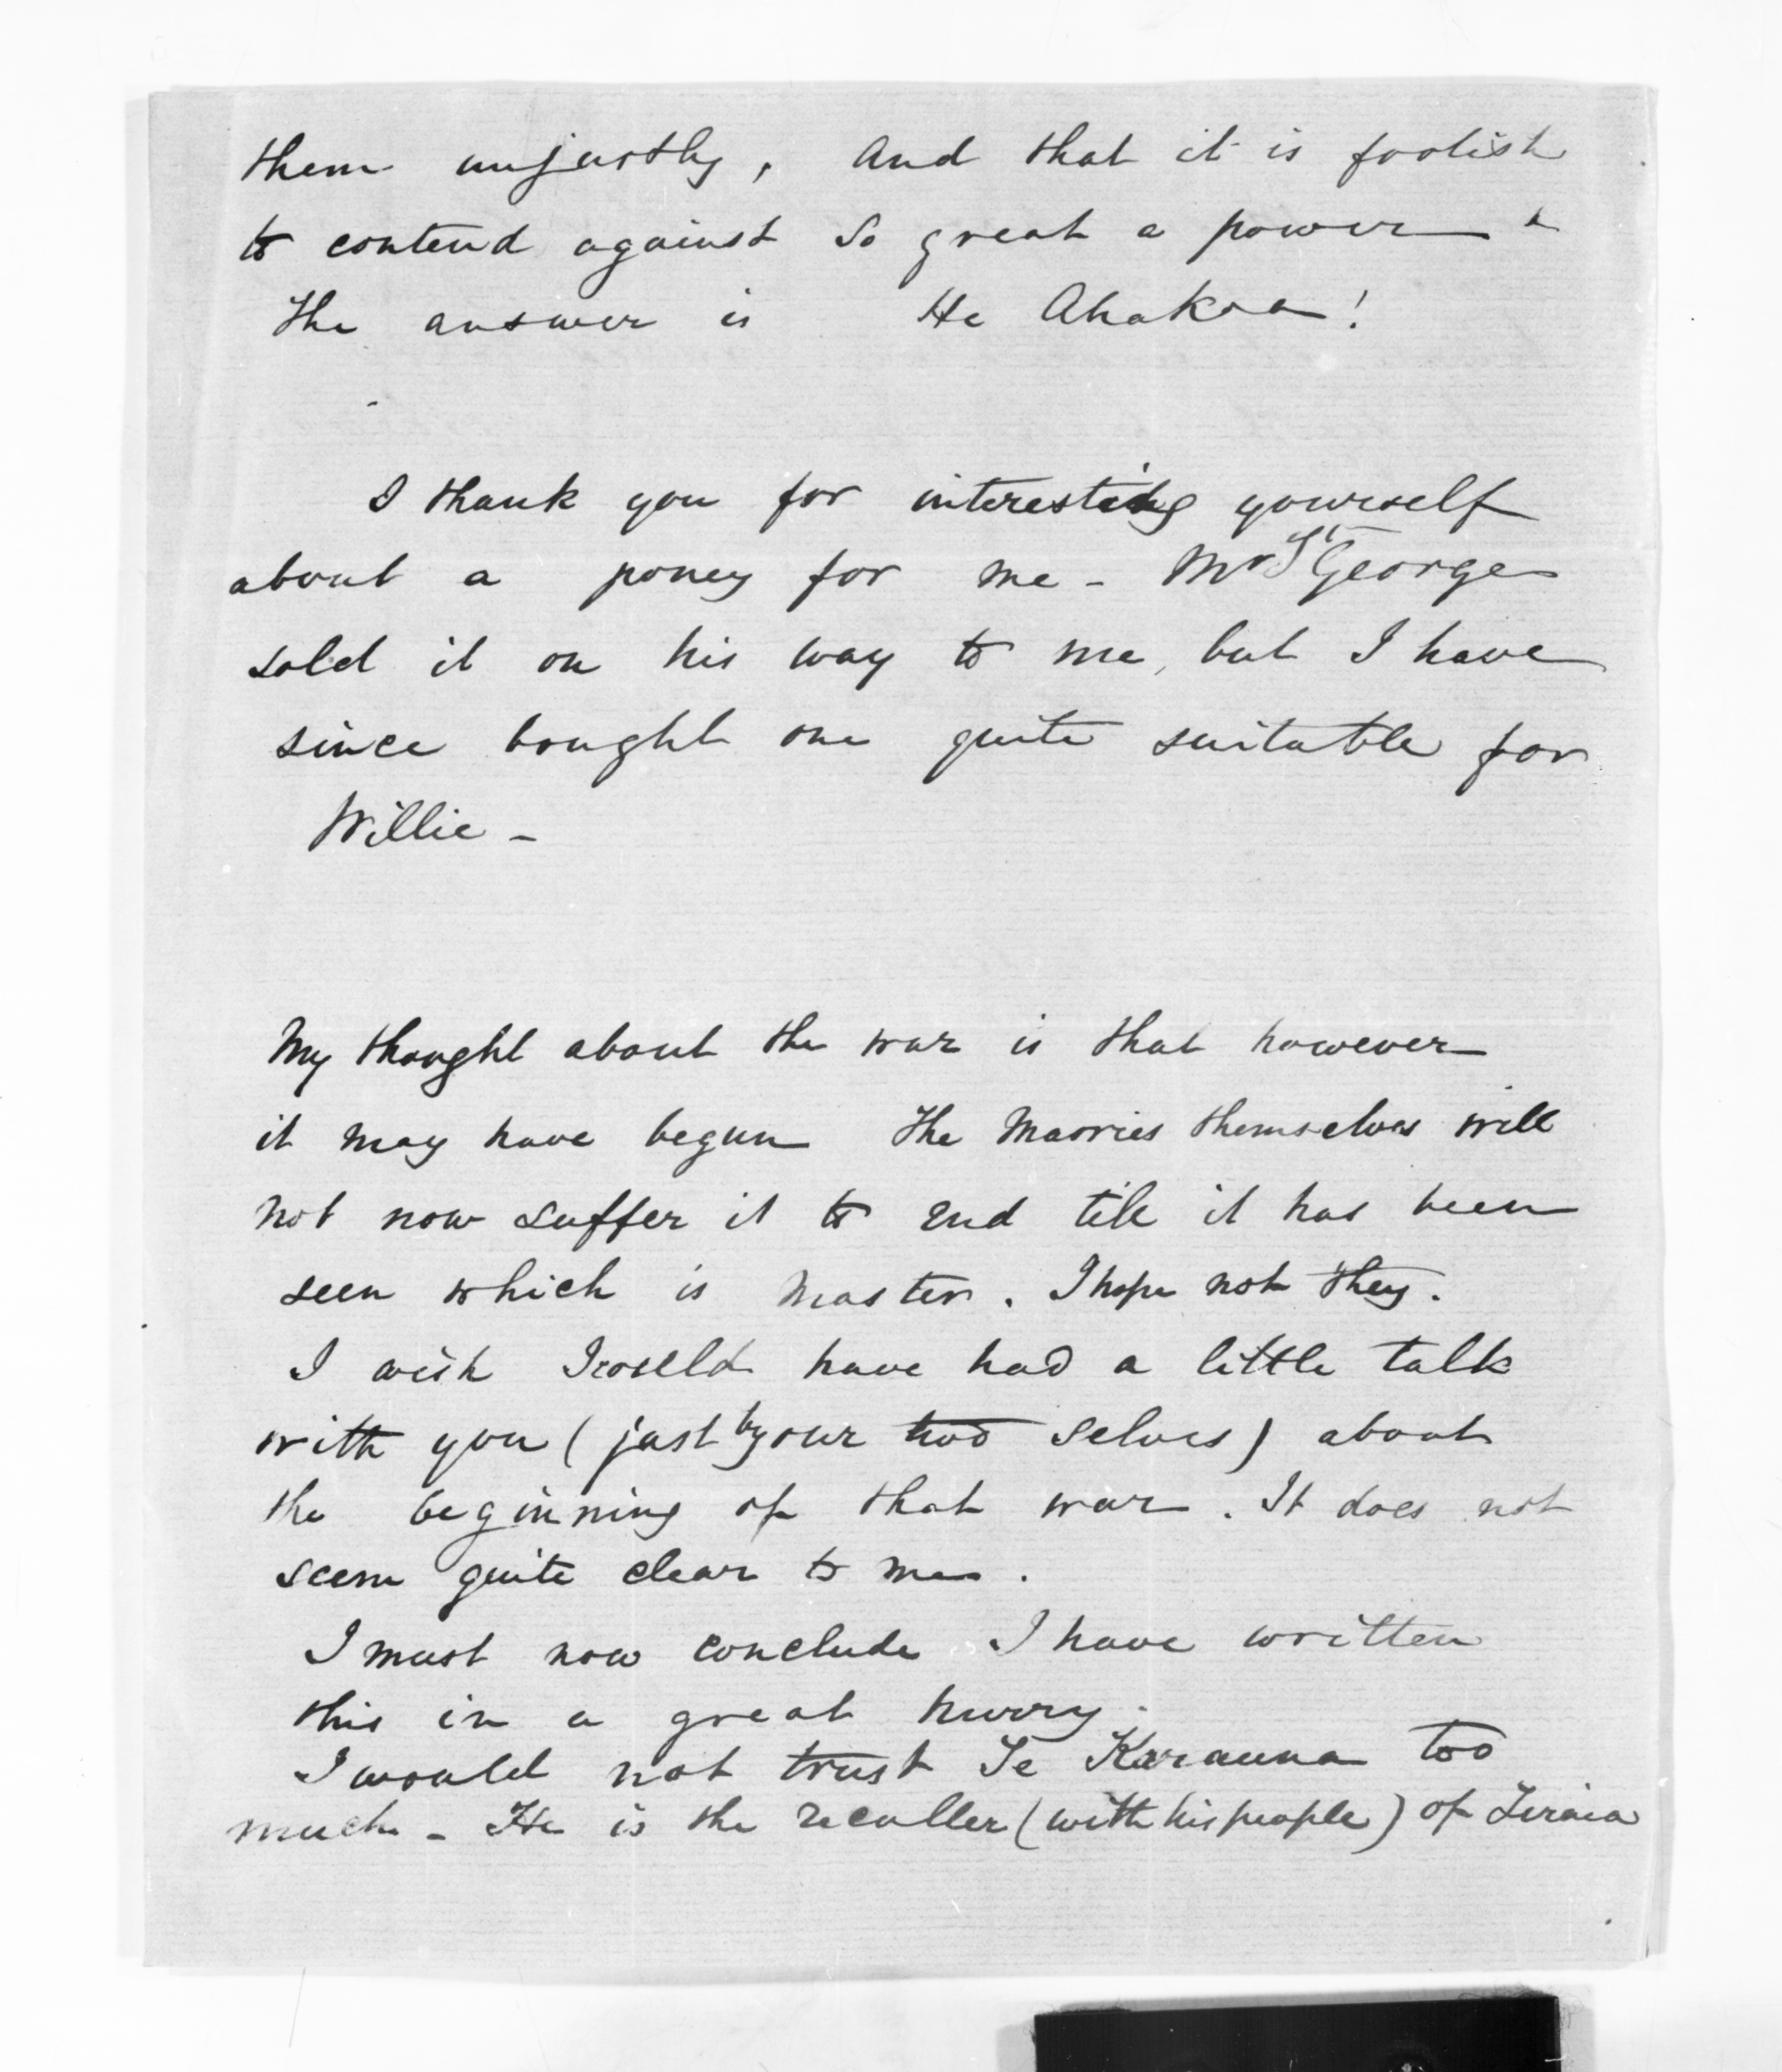 them unjustly, And that it is foolish
to contend against so great a power
the answer is He Ahakoa!
I thank you for interesting yourself
about a poney for me - Mr St George
sold it on his way to me, but I have
since bought one quite suitable for
Willie -
My thought about the war is that however
it may have begun the Maories themselves will
not now suffer it to end till it has been
seen which is Master. I hope not they.
I wish I could have had a little talk
with you (just by our two selves) about
the beginning of that war. It does not
seem quite clear to me.
I must now conclude I have written
this in a great hurry.
I would not trust Te Karauna too
much - He is the (with his people) of